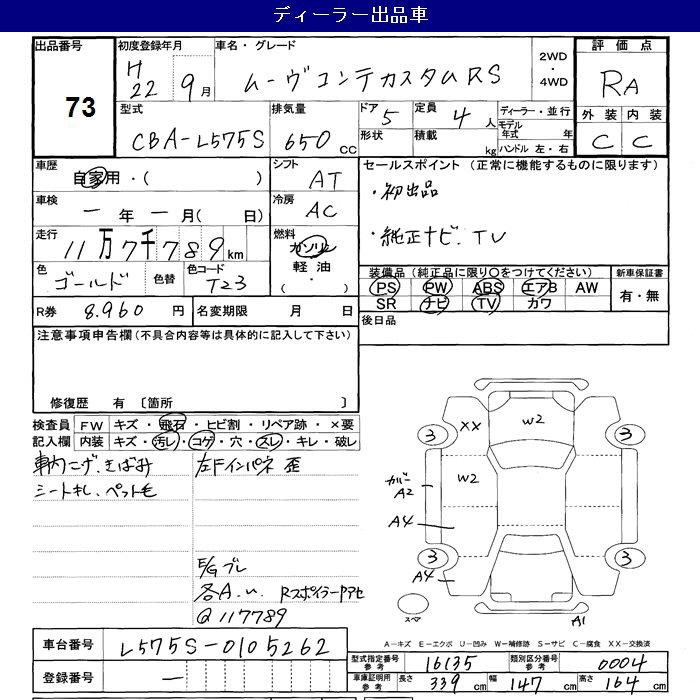 ディーラー出品車
出品番号 73
初度登録年月 H 22 9月
車名・グレード ムーヴコンテカスタムRS
2WD・4WD
評価点 RA
外装 C 内装 C
型式 CBA-L575S
排気量 650cc
ドア 5
定員 4人
形状
積載 kg
ディーラー・並行
モデル年式 年
ハンドル 左・右
車歴 自家用・( )
シフト AT
車検 ー年ー月( 日)
冷房 AC
走行 11万7千789km
燃料 ガソリン 軽油 ( ・ )
色 ゴールド 色替
色コード T23
R券 8.960円
名変期限 月 日
セールスポイント (正常に機能するものに限ります)
・初出品
・純正ナビ.TV
装備品(純正品に限り○をつけてください)
PS PW ABS エアB AW
SR ナビ TV カワ
新車保証書 有・無
後日品
注意事項申告欄(不具合内容等は具体的に記入して下さい)
修復歴 有 〔箇所 〕
検査員記入欄
FW キズ・飛石・ヒビ割・リペア跡・×要
内装 キズ・汚レ・コゲ・穴・スレ・キレ・破レ
車内コゲ、きばみ
シートキレ、ペット毛
左Fインパネ 歪
E/Gブレ
各A.u. RスポイラーPアセ
Q117789
3 XX W2 3
W2
カバー A2
A4
3 3
A4
スペア
A1
A-キズ E-エクボ U-凹み W-補修跡 S-サビ C-腐食 XX-交換済
車台番号 L575S-0105262
登録番号 ー
型式指定番号 参考 16135
類別区分番号 参考 0004
車庫証明用 参考 長さ 339cm 幅 147cm 高さ 164cm